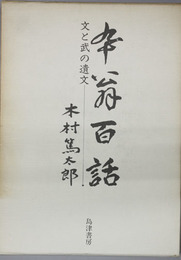 卆翁百話
文と武の遺文
木村篤太郎
島津書房